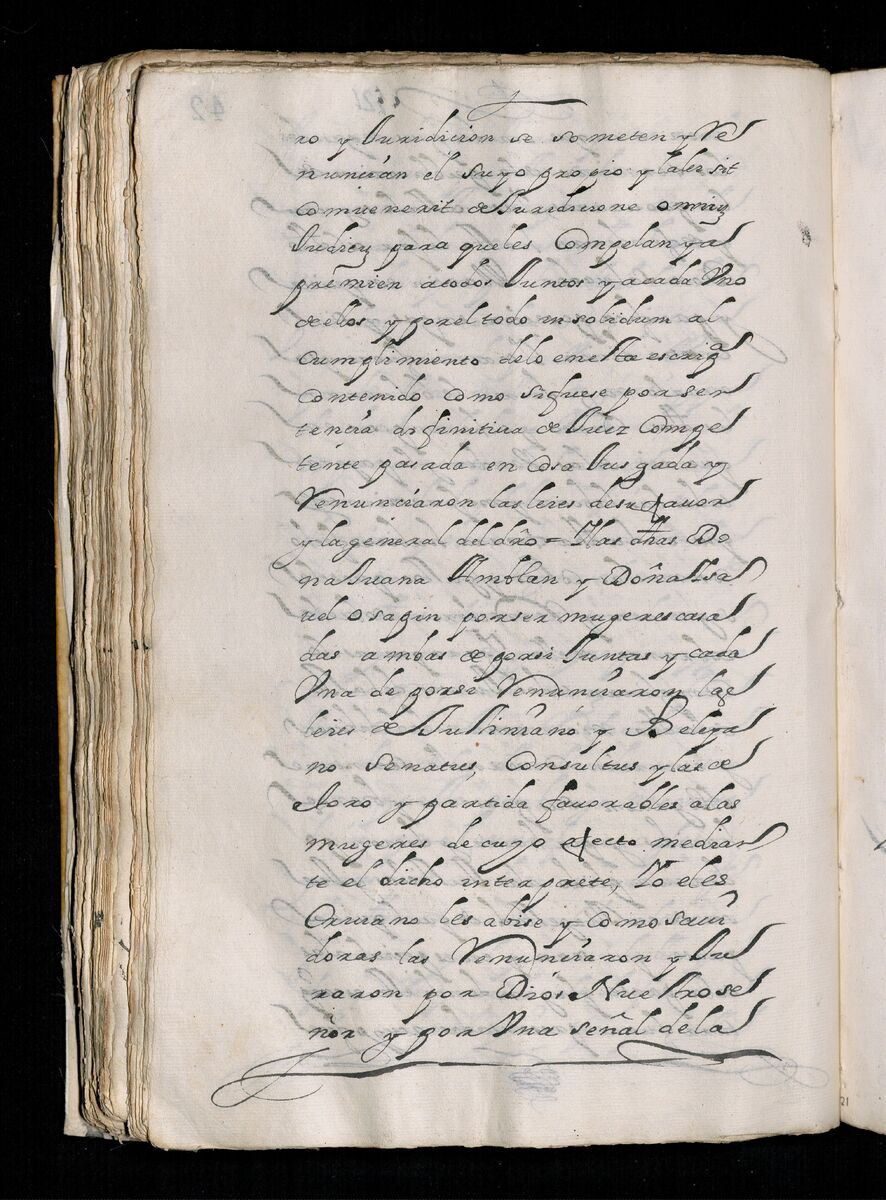 ro y Juridicion se someten y Re
nuncian el suyo propio y la lei sit
Comvenerit de Juridicione omniũ
Judicũ para que les Compelan y a
premien a todos Juntos y a cada Vno
de ellos y por el todo in solidum al
Cumplimiento de lo en esta escripª
Contenido Como si fuese por sen
tencia difinitiua de Juez Compe
tente pasada en Cosa Jusgada y
Renunciaron las leies de su fauor
y la general del dr̃o = Y las dhas Do
na Juana Amblan y Doña Isa
uel Osagin por ser mugeres casa
das ambas de por si Juntas y cada
Vna de por si Renunciaron las
leies de Justiniano y Beleya
no Senatus, Consultus y las de
storo y partida fauorables a las
mugeres de cuyo afecto median
te el dicho interprete, Yo el es
Criuano les abise y Como saui
doras las Renunciaron y Ju
raron por Dios Nuestro se
ñor y por Vna señal de la